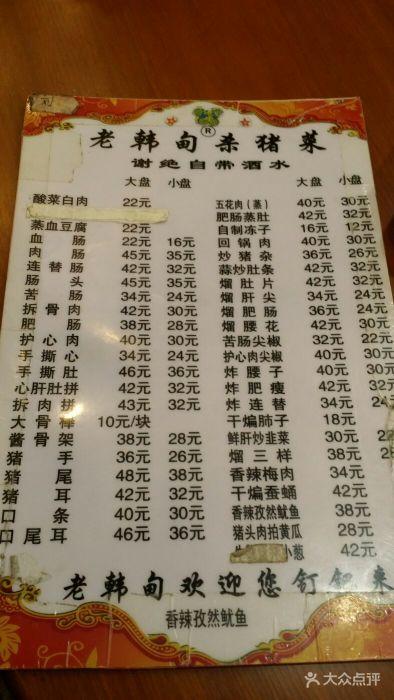 老韩甸杀猪菜
谢绝自带酒水
大盘 小盘
酸菜白肉 22元
蒸血豆腐 22元
血肠 22元 16元
肉肠 45元 35元
连替肠 42元 32元
肠头 45元 35元
苦肠 34元 24元
拆骨肉 42元 30元
肥肠 38元 28元
护心肉 40元 30元
手撕心 34元 24元
手撕肚 46元 36元
心肝肚拼 42元 32元
拆肉拼 43元 32元
大骨棒 10元/块
酱骨架 38元 28元
猪手 36元 26元
猪尾 48元 38元
猪耳 42元 32元
口条 40元 30元
口尾耳 46元 36元
大盘 小盘
五花肉（蒸） 40元 30元
肥肠蒸肚 42元 32元
自制冻子 16元 12元
回锅肉 40元 30元
炒猪杂 36元 26元
蒜炒肚条 42元 32元
熘肚片 42元 32元
熘肝尖 34元 24元
熘肥肠 42元 32元
熘腰花 42元 30元
苦肠尖椒 42元 32元
护心肉尖椒 40元 30元
炸腰子 42元 30元
炸肥瘦 42元 32元
炸连替 34元 24元
干煸肺子 18元
鲜肝炒韭菜 30元
熘三样 38元 28元
香辣梅肉 34元
干煸蚕蛹 42元
香辣孜然鱿鱼 38元
猪头肉拍黄瓜 28元
小葱 42元
老韩甸欢迎您
香辣孜然鱿鱼
大众点评